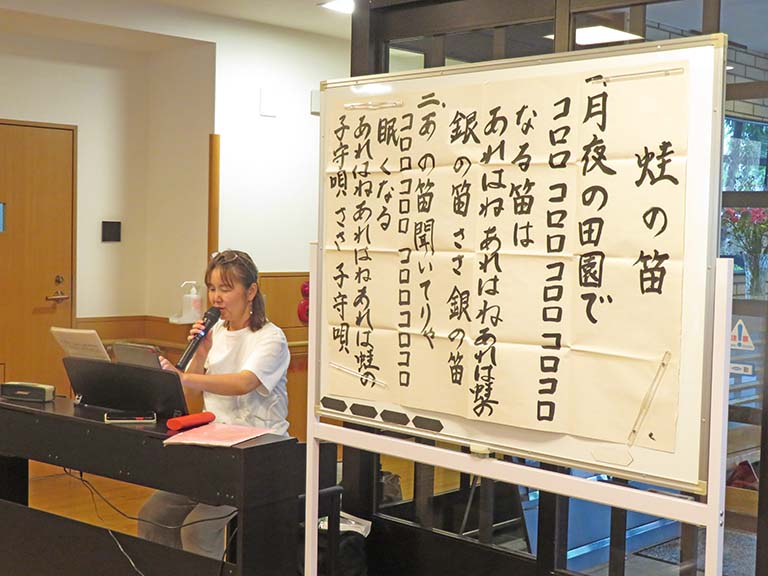 蛙の笛
一、月夜の田園で
コロロ コロロ コロロ コロコロ
なる笛は
あれはねあれはねあれは蛙の
銀の笛ささ銀の笛
二、あの笛聞いてりゃ
コロロコロロ コロロコロコロ
眠くなる
あれはねあれはねあれは蛙の
子守唄ささ子守唄